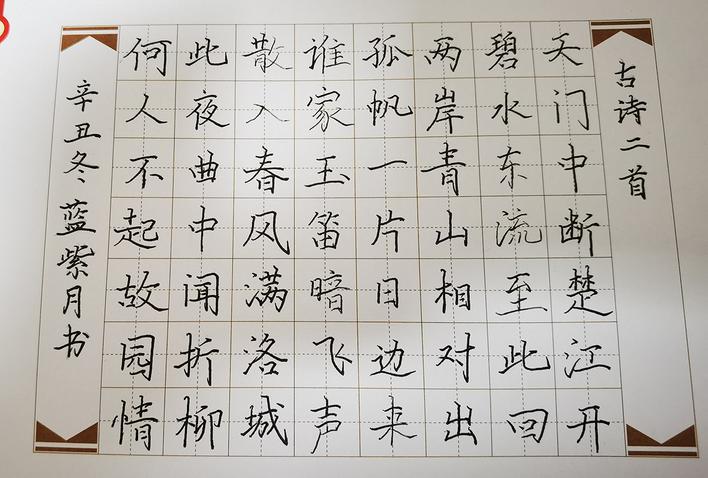 古诗二首
天门中断楚江开
碧水东流至此回
两岸青山相对出
孤帆一片日边来
谁家玉笛暗飞声
散入春风满洛城
此夜曲中闻折柳
何人不起故园情
辛丑冬蓝紫月书